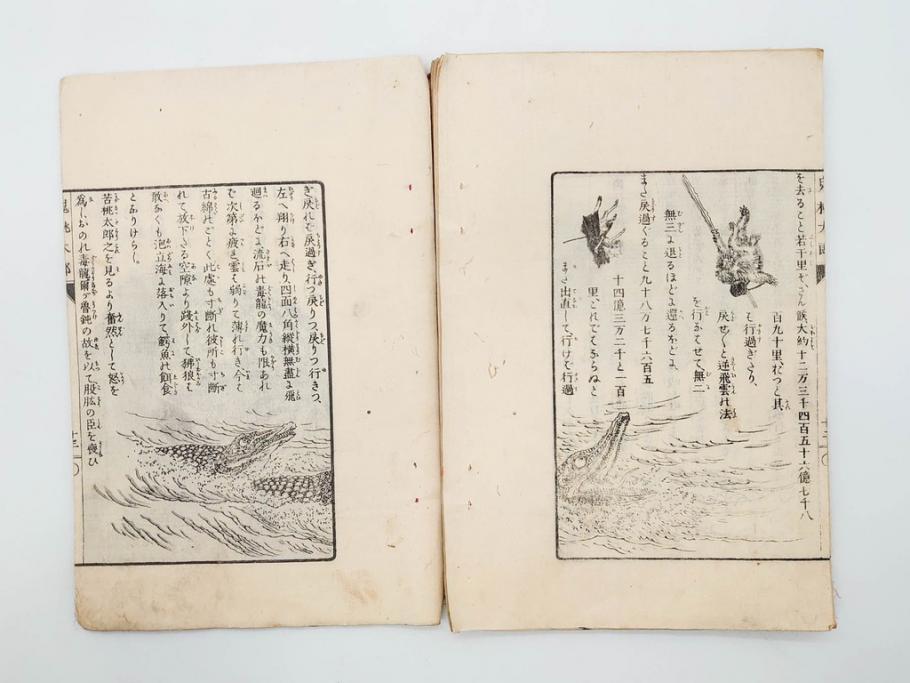 を去ること若干里ぞ、さん候大約十二万三千四百五十六億七千八
百九十里、おつと其
を行過ぎさり、
戻せ〳〵と逆飛雲の法
を行なはせて無二
無三に退るほどに還るほどに、
また戻過ぐること九十八万七千六百五
十四億三万二千と一百
里、これでならぬと
また出直して、行けば行過
ぎ戻れば戻過ぎ、行つ戻りつ、戻りつ行きつ、
左へ翔り右へ走り、四面八角縦横無盡に飛
廻るほどに流石の毒龍の魔力も限あれ
ば次第に疲き雲も弱りて薄れ行き今は
古綿のごとく此處も寸断れ彼所も寸断
れて放下さるゝ空隙より踐外して狒狼も
敢なくも泡立海に落入りて鰐魚の餌食
とありけらし、
苦桃太郎之を見るより奮然として怒を
為し、おのれ毒龍爾が魯鈍の故を以て股肱の臣を喪ひ
鬼桃太郎
十三